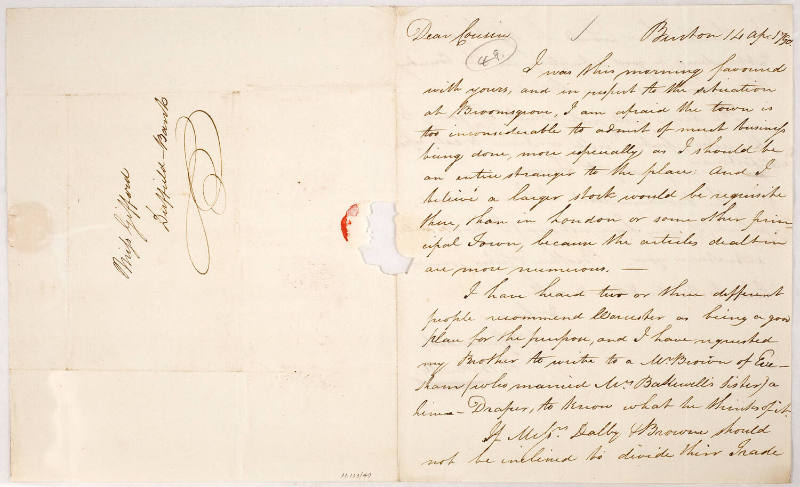 Miss Gifford
Duffield-Bank
Dear Cousin
Burton 14 Ap. 1790
49.
I was this morning favoured
with yours, and in respect to the situation
at Broomsgrove, I am afraid the town is
too inconsiderable to admit of much business
being done, more especially, as I should be
an entire stranger to the place: And I
believe a larger stock would be requisite
there, than in London or some other prin-
cipal Town, because the articles dealt in
are more numerous. —
I have heard two or three different
people recommend Worcester as being a good
place for the purpose, and I have requested
my Brother to write to a Mr. Brown of Eve-
sham (who married Mrs. Bakewell's sister) a
linen-Draper, to know what he thinks of it.
If Messrs. Dalby & Browne should
not be inclined to divide their Trade